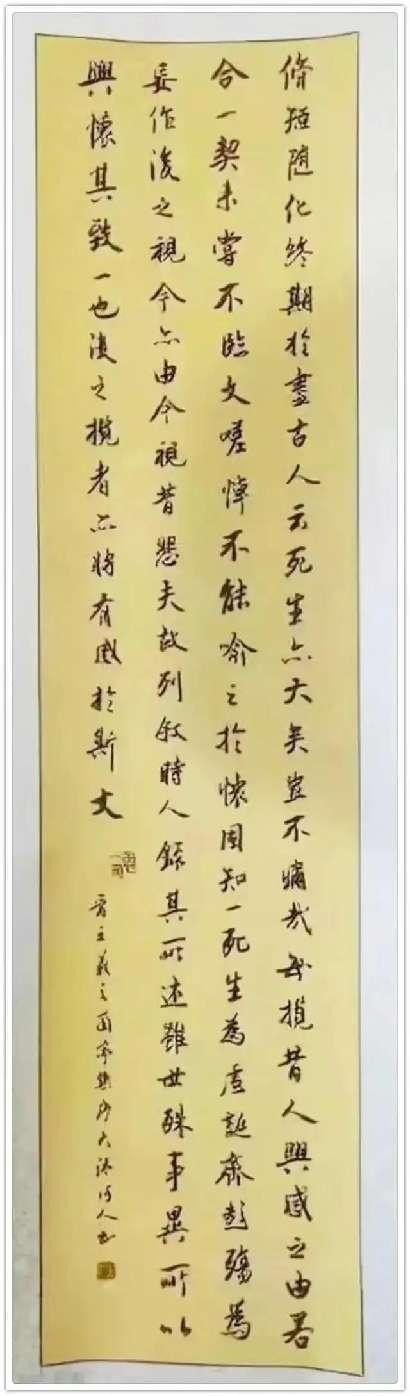 脩短随化終期於盡古人云死生亦大矣豈不痛哉每攬昔人興感之由若
合一契未嘗不臨文嗟悼不能喻之於懷固知一死生為虛誕齊彭殤為
妄作後之視今亦由今視昔悲夫故列敘時人錄其所述雖世殊事異所以
興懷其致一也後之攬者亦將有感於斯文
晋王羲之蘭亭集序大人书